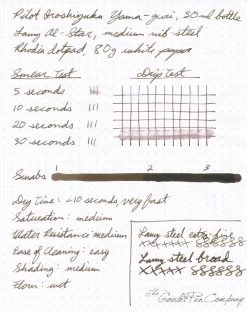 Pilot Iroshizuku Yama-guri, 50ml bottle
Lamy Al-Star, medium nib steel
Rhodia dotpad, 80g white paper
Smear Test
Drip Test
5 seconds
10 seconds
20 seconds
30 seconds
Swabs
1 2 3
Dry Time: ~10 seconds, very fast
Saturation: medium
Water Resistance: medium
Ease of Cleaning: easy
Shading: medium
Flow: wet
Lamy steel extra-fine
xxxxxx 888888
Lamy steel broad
xxxxx 888888
The Goulet Pen Company